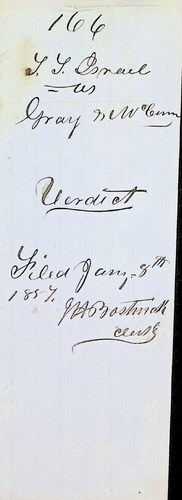 166
T. T. Israel
vs
Gray & McCann
Verdict
Filed Jany 8th
1857.
J H Bostwick
Clerk